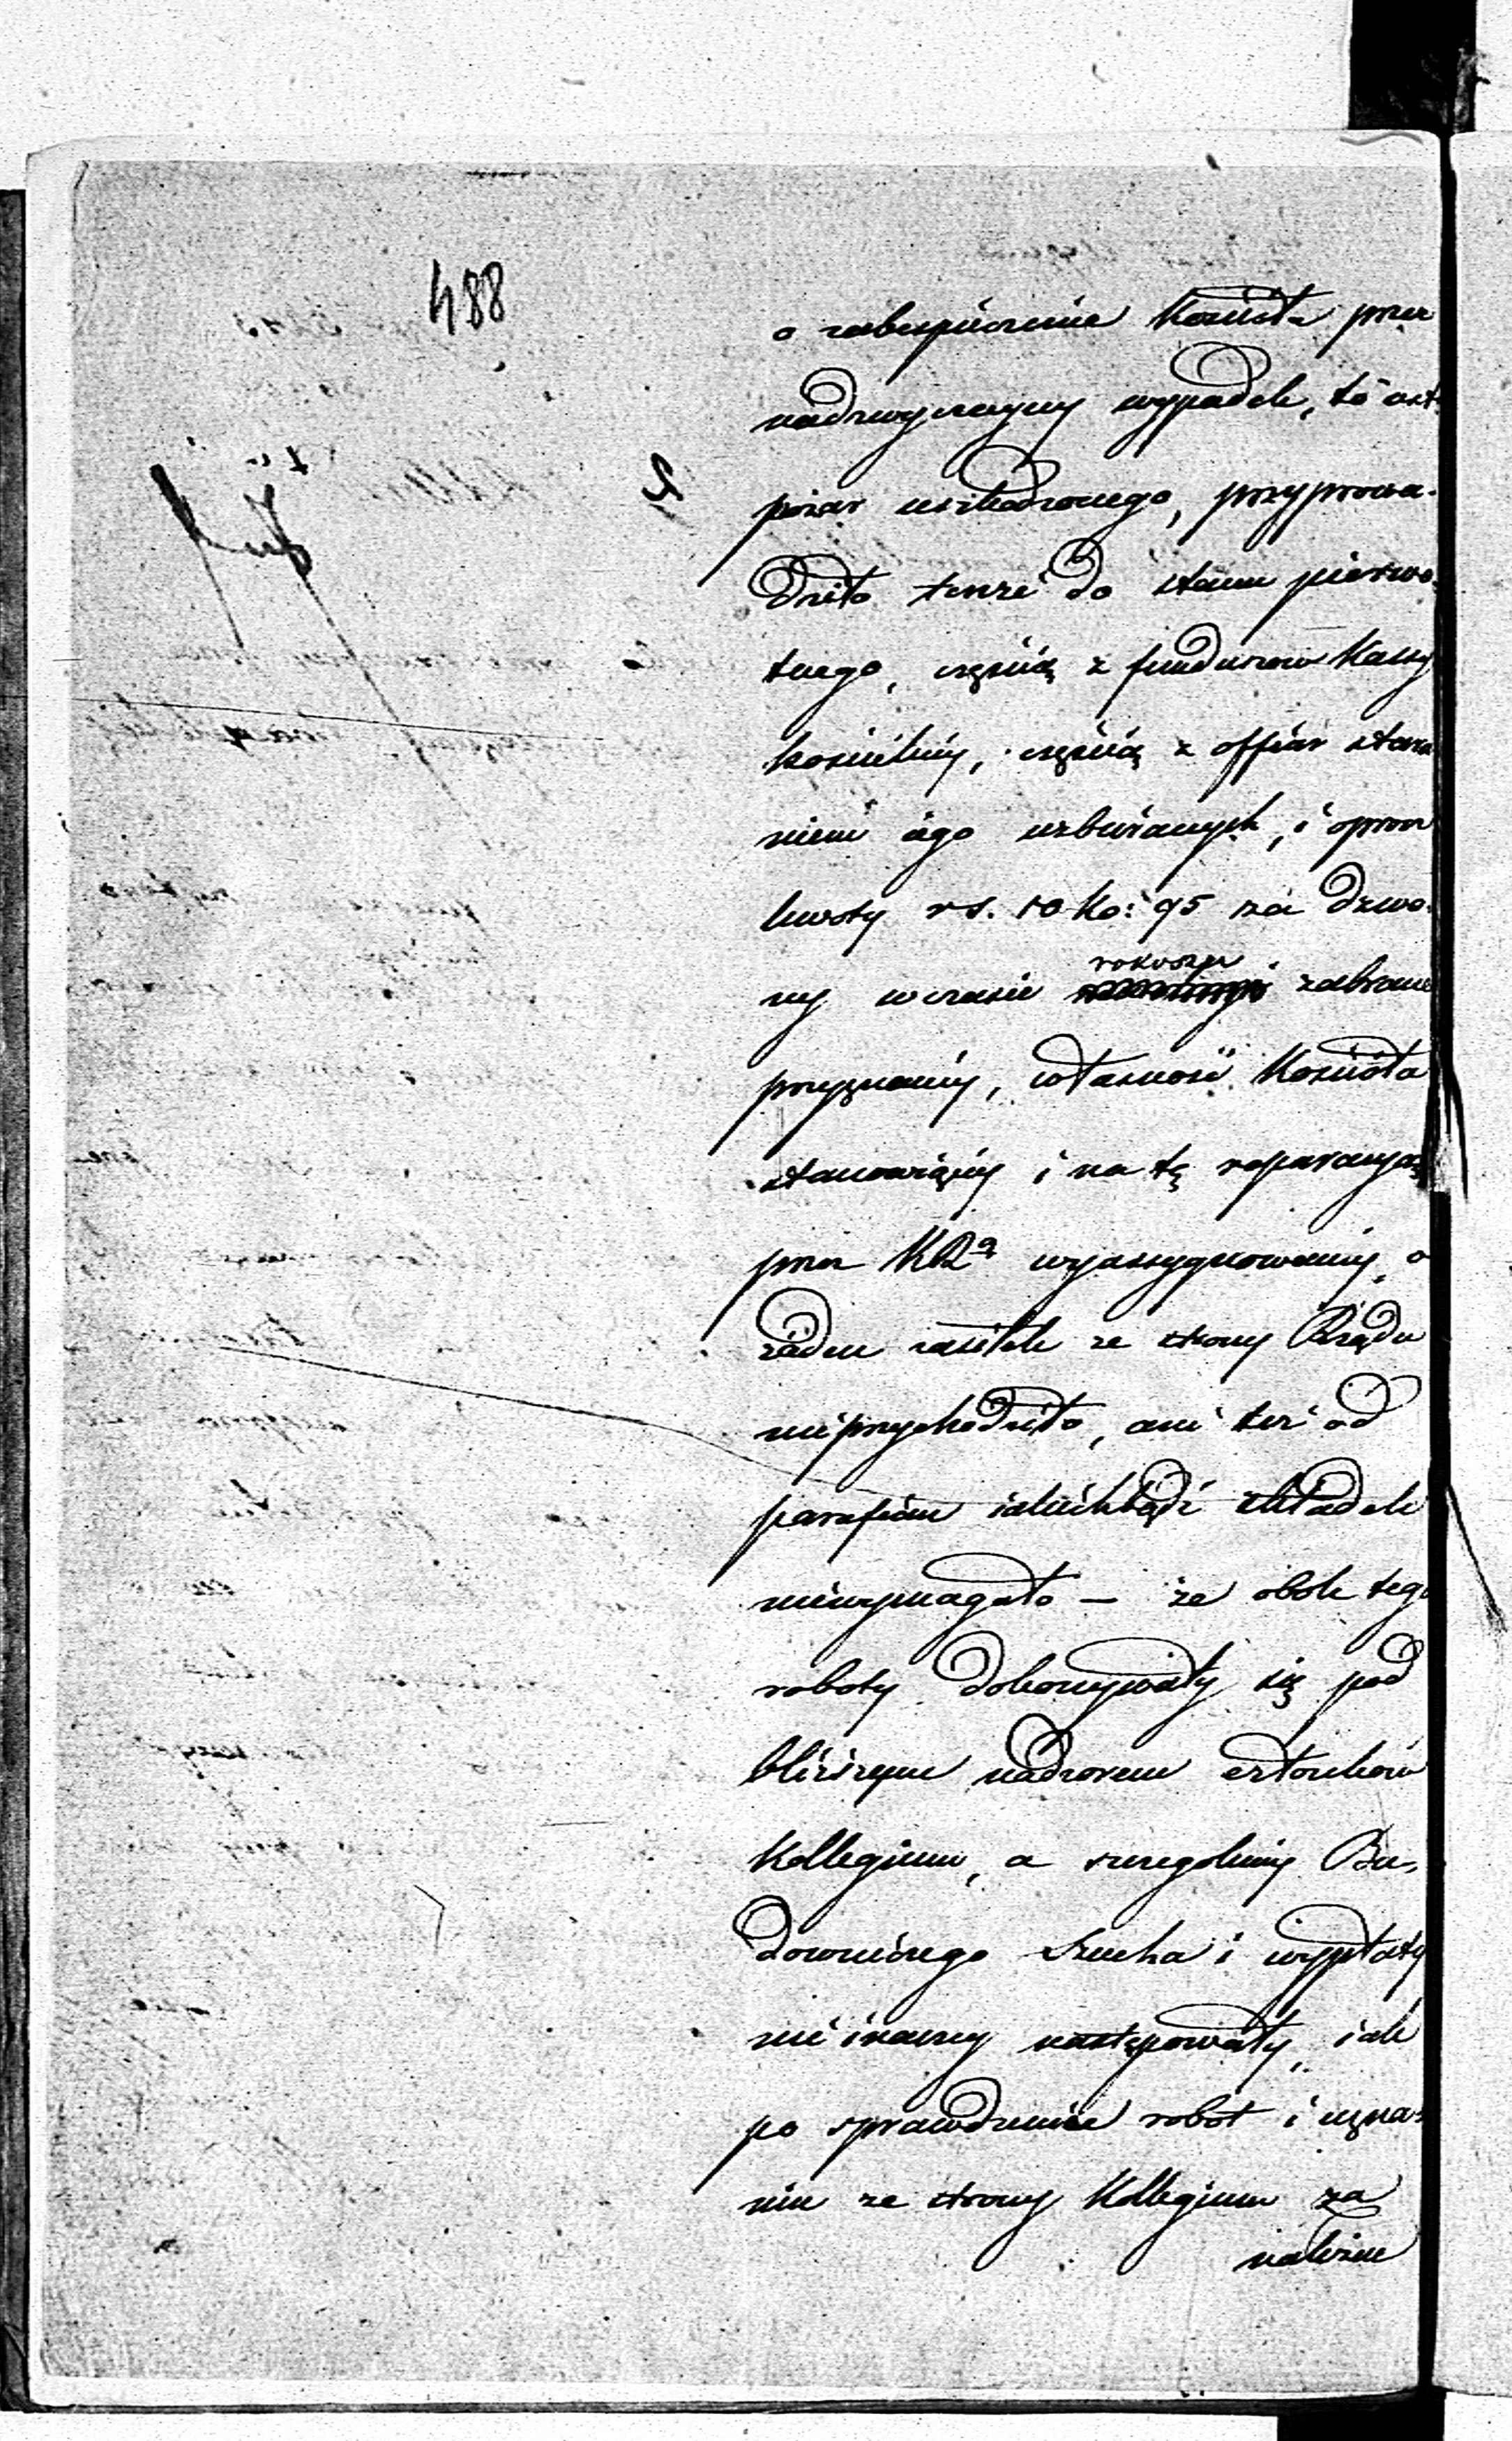 488
o zabespieczenie Kościoła przez
nadzwyczayny wypadek, to iest
pożar uszkodzonego, przyprowa-
dziło tenże do stanu pierwo-
tnego, częścią z funduszow Kassy
kościelnéy, częścią z offiar stara
niem iego uzbieranych, i oprocz
kwoty rs. 10 ko: 95 za dzwo-
ny w czasie rokoszu zabrane
przyznanéy, własność Kościoła
stanowiącéy i na tę reparacyą
przez KRą wyassygnowanéy, o
żaden zasiłek ze strony Rządu
nieprzychodziło, ani też od
parafian iakichbądź składek
niewymagało — że obok tego
roboty dokonywały się pod
bliższym nadzorem członków
Kollegium, a szczególniéy Bu-
downiczego Szucha i wypłaty
nie inaczey następowały, iak
po sprawdzeniu robot i uzna-
niu ze strony Kollegium za
należne